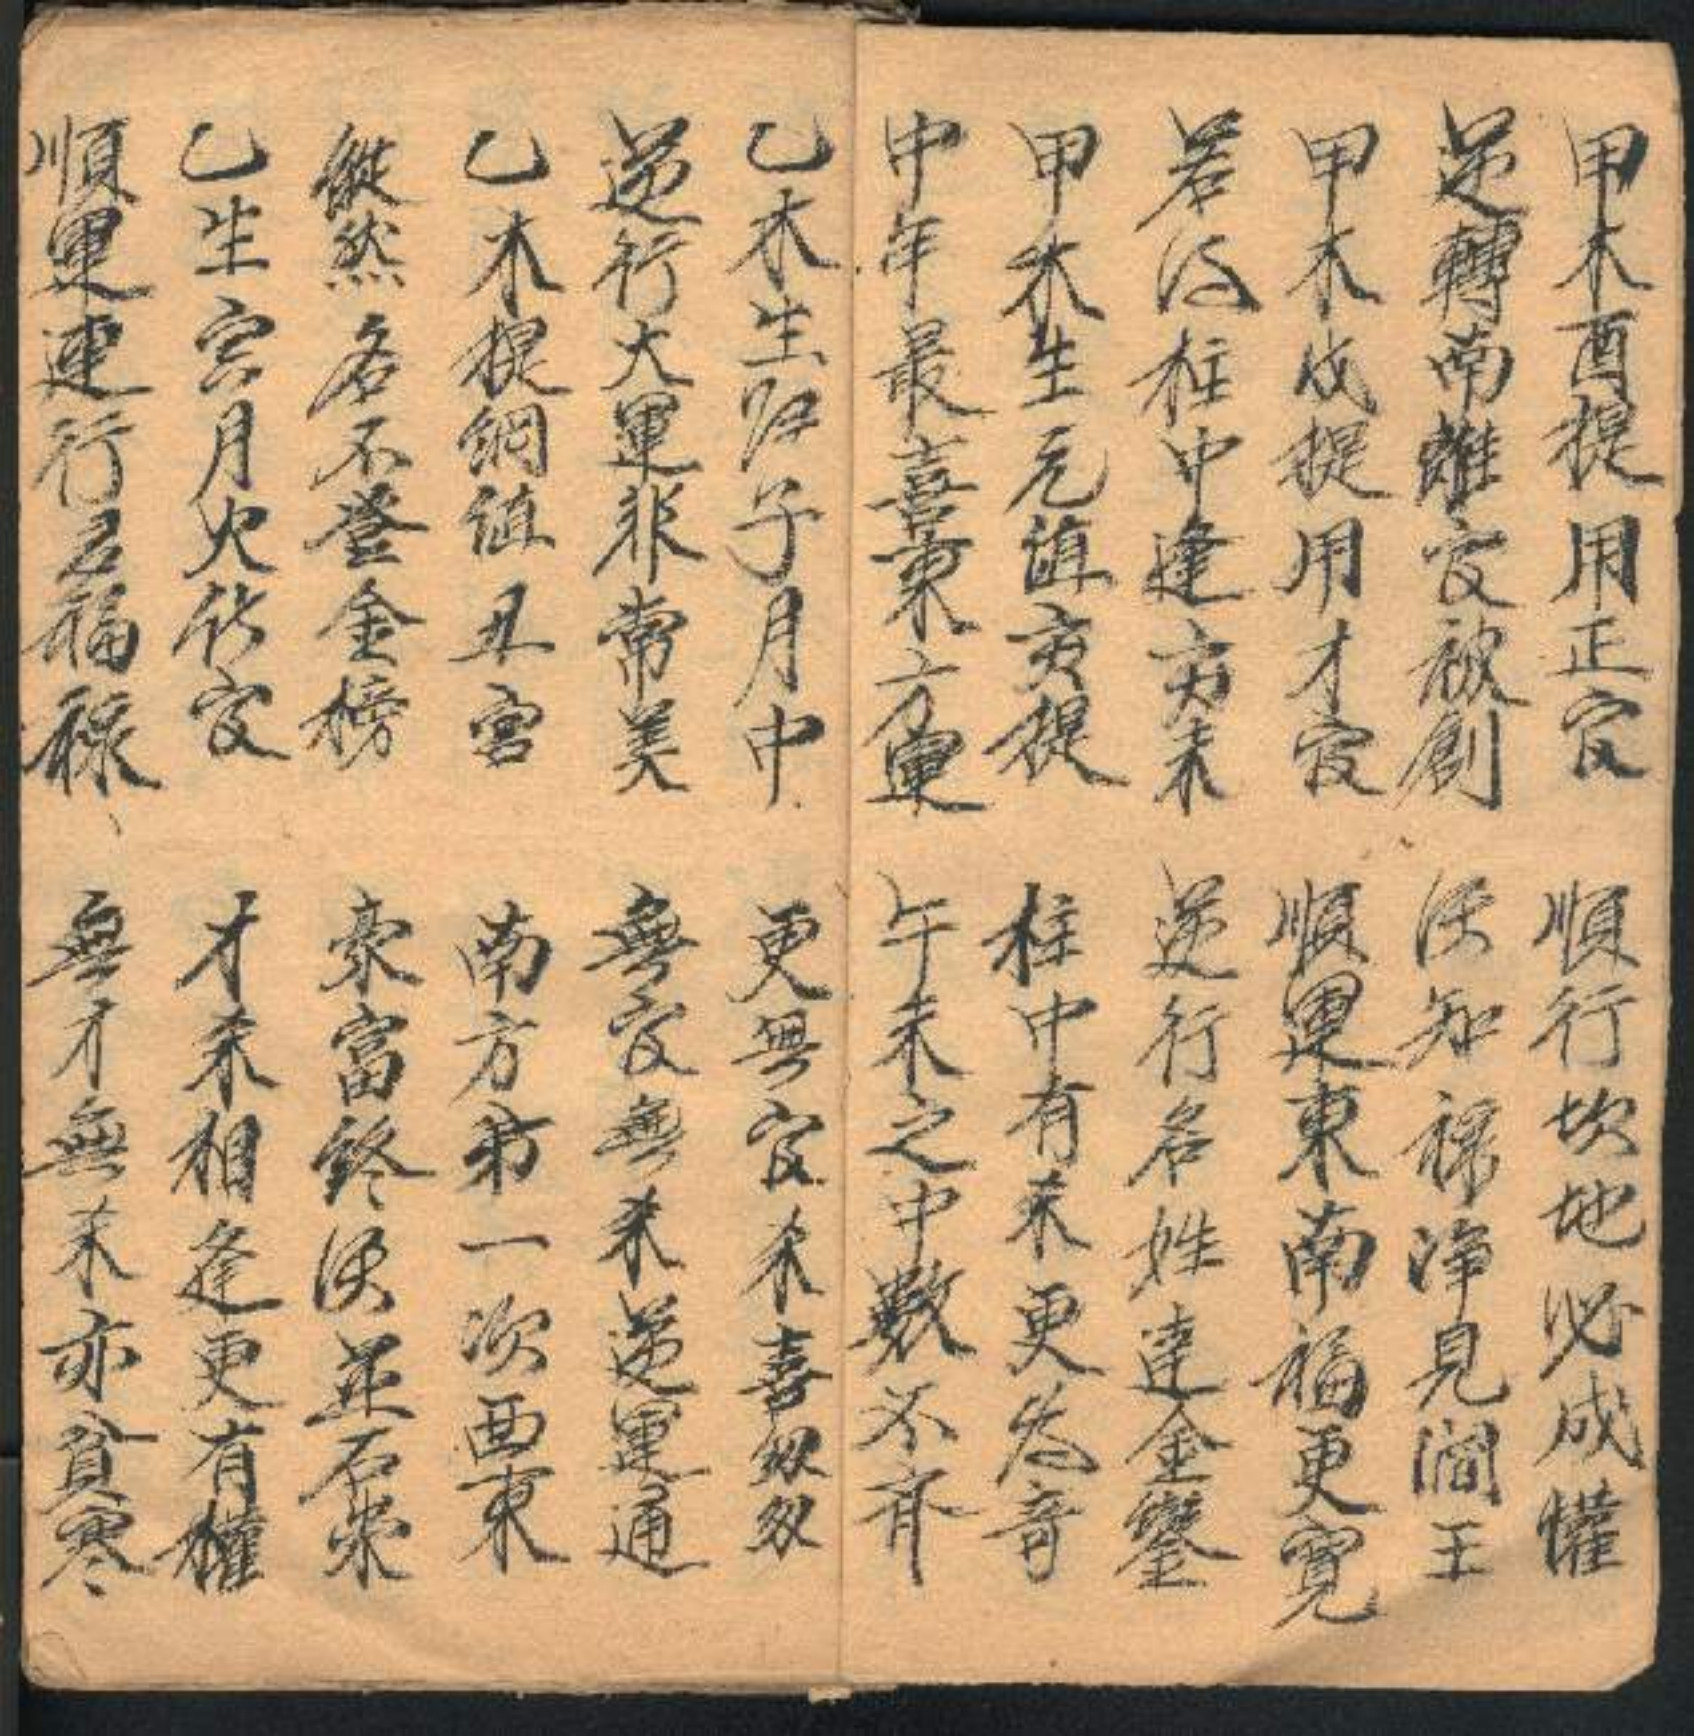 甲木酉提用正官 順行坎地必成懽
逆轉南離官被創 須知祿淨見閻王
甲木戌提用才官 順運東南福更寬
若得柱中逢亥未 逆行名姓達金鑾
甲木生元值亥提 柱中有未更為奇
中年最喜東方運 午未之中數不齊
乙木生归子月中 更無官杀喜重重
逆行大運非常美 無官無杀逆運通
乙木提綱值丑宮 南方第一次西東
縱然名不登金榜 豪富終須並石崇
乙生寅月火作官 才杀相逢更有權
順運連行名福祿 無才無杀亦貧寒